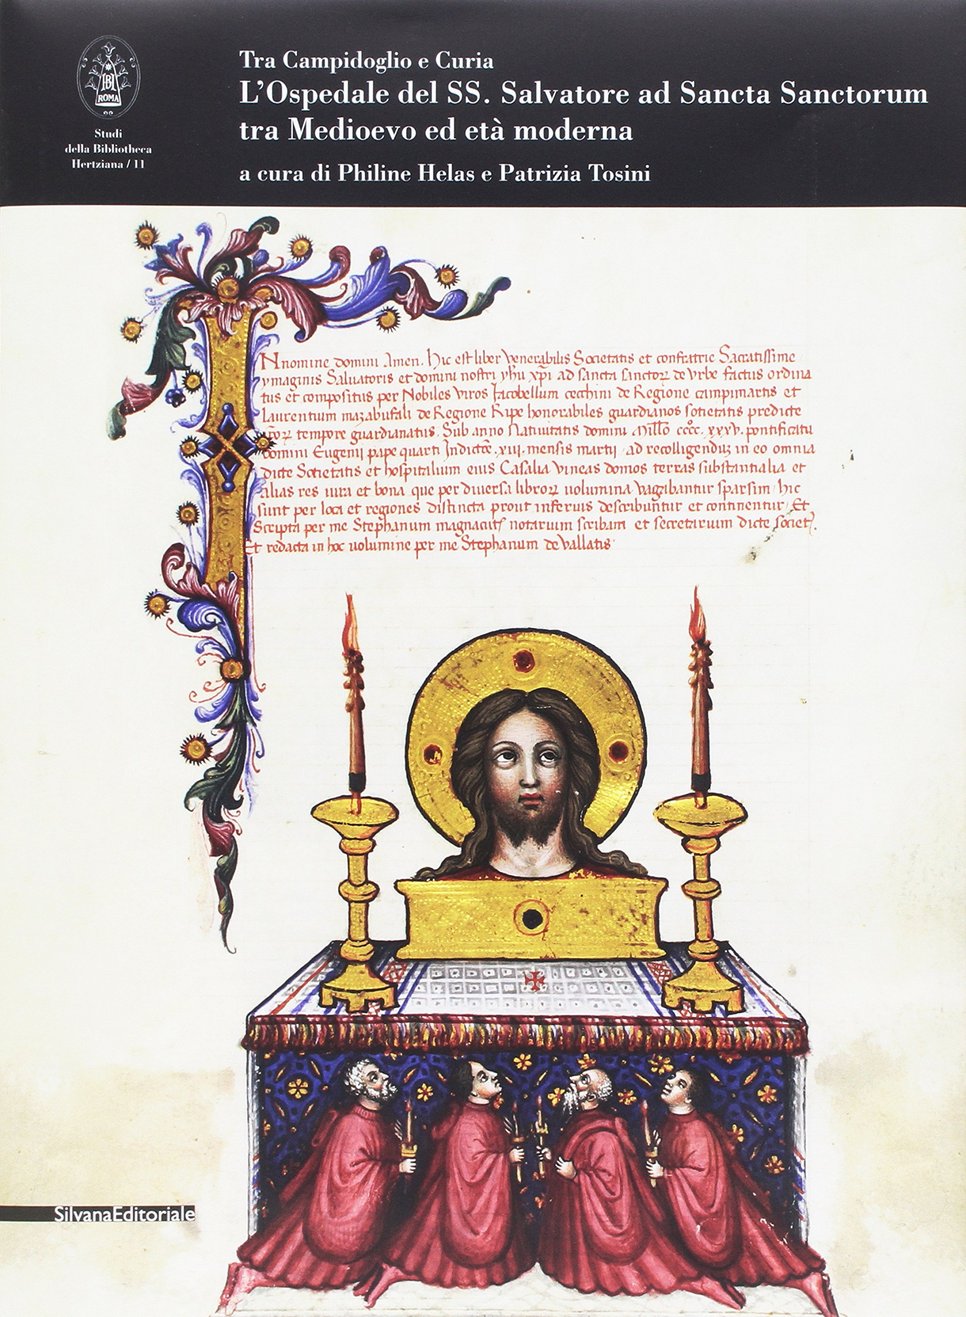 Tra Campidoglio e Curia
L'Ospedale del SS. Salvatore ad Sancta Sanctorum
tra Medioevo ed età moderna
a cura di Philine Helas e Patrizia Tosini
BH
ROMA
Studi
della Bibliotheca
Hertziana / 11
Nnomine domini Amen. Hic est liber venerabilis Societatis et confratrie Sacratissime
ymaginis Saluatoris et domini nostri yhu xpi ad sancta sanctor de vrbe factus ordina
tus et compositus per Nobiles viros Iacobellum cecchini de Regione campimartis et
Laurentium mazabufali de Regione Ripe honorabiles guardianos societatis predicte
tempore guardianatus. Sub anno Natiuitatis domini Millo cccc. xxxv. pontificatu
domini Eugenii pape quarti Indictoe. xiii. mensis martii ad recolligenduz in eo omnia
dicte Societatis et hospitalium eius Casalia vineas domos terras substantialia et
alias res iura et bona que per diuersa libror uolumina vagabantur sparsim. hic
sunt per loca et regiones distincta prout inferius describuntur et continentur. Et
Scripta per me Stephanum magnacius notarium scribam et secretarium dicte societ.
Et redacta in hoc uolumine per me Stephanum de Vallatis
SilvanaEditoriale